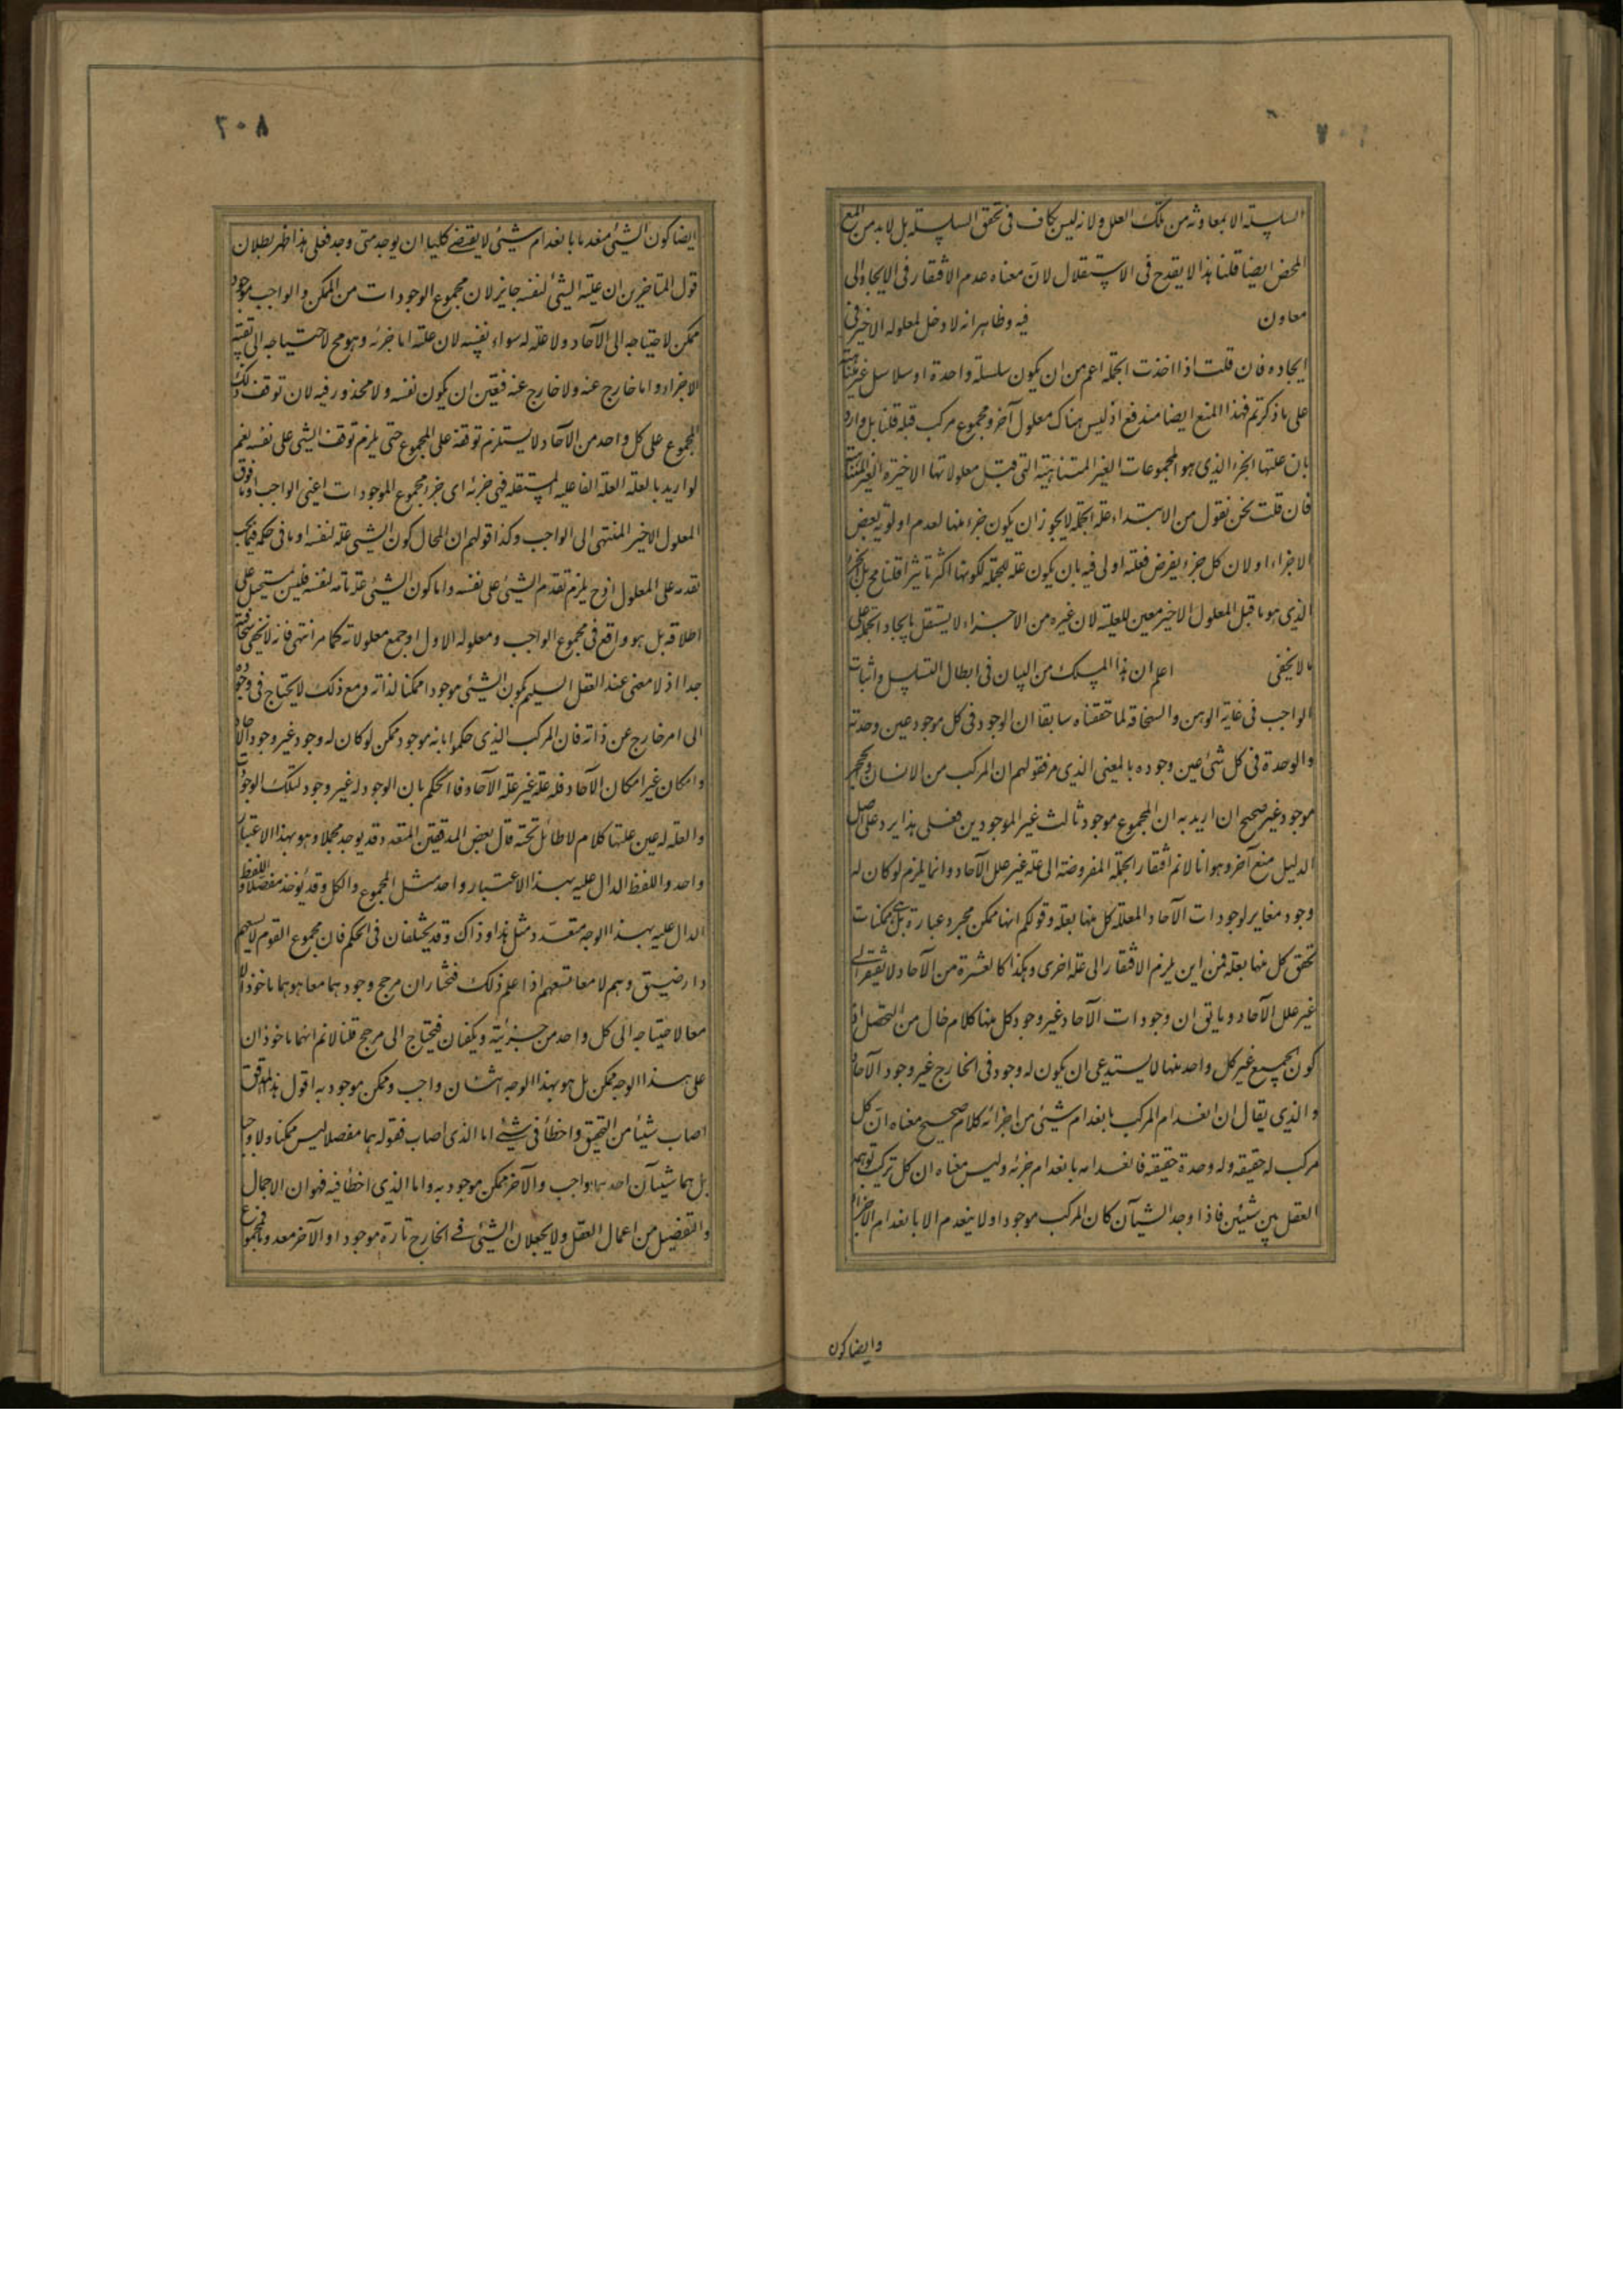 ٢٠٧
السلسلة الا بمعاونة من تلك العلل ولانه ليس بكاف فى تحقق السلسلة بل لا بد من المع
المحض ايضا قلنا هذا لا يقدح فى الاستقلال لان معناه عدم الافتقار فى الايجاد الى
معاون فيه وظاهر انه لا دخل لمعلوله الاخير فى
ايجاده فان قلت اذا اخذت الجملة اعم من ان يكون سلسلة واحدة او سلاسل غير متناهية
على ما ذكرتم فهذا المنع ايضا مندفع اذ ليس هناك معلول آخر ومجموع مركب قبله قلنا بل وارد
بان علتها الجزء الذى هو المجموعات الغير المتناهية التى قبل معلولاتها الاخيرة الغير المتناهية
فان قلت نحن نقول من الابتداء علة الجملة لا يجوز ان يكون جزء منها لعدم اولوية بعض
الاجزاء او لان كل جزء يفرض فعلته اولى فيه بان يكون علة للجملة لكونها اكثر تاثيرا قلنا مم بل الجزء
الذى هو ما قبل المعلول الاخير معين للعلية لان غيره من الاجزاء لا يستقل بايجاد الجملة على
ما لا يخفى اعلم ان هذا المسلك من البيان فى ابطال التسلسل واثبات
الواجب فى غاية الوهن والسخافة لما حققناه سابقا ان الوجود فى كل موجود عين وحدته
والوحدة فى كل شئ عين وجوده بالمعنى الذى مر فقولهم ان المركب من الانسان والحجر
موجود غير صحيح ان اريد به ان المجموع موجود ثالث غير الموجودين فعلى هذا يرد على اصل
الدليل منع آخر وهو انا لا نم افتقار الجملة المفروضة الى علة غير علل الآحاد وانما يلزم لو كان له
وجود مغاير لوجودات الآحاد المعللة كل منها بعلة وقولكم انها ممكن مجرد عبارة بل هى ممكنات
تحقق كل منها بعلة فمن اين يلزم الافتقار الى علة اخرى وهكذا كالعشرة من الآحاد لا يفتقر الى
غير علل الآحاد وما يق ان وجودات الآحاد غير وجود كل منها كلام خال من التحصل اذ
كون الجميع غير كل واحد منها لا يستدعى ان يكون له وجود فى الخارج غير وجود الآحاد
والذى يقال ان انعدام المركب بانعدام شيئ من اجزائه كلام صحيح معناه ان كل
مركب له حقيقة وله وحدة حقيقة فانعدامه بانعدام جزئه وليس معناه ان كل تركب توهمه
العقل بين شيئين فاذا وجد الشيئان كان المركب موجودا ولا ينعدم الا بانعدام الاجزاء
وايضا كون
٢٠٨
ايضا كون الشيئ منعدما بانعدام شيئ لا يقتضے كليا ان يوجد متى وجد فعلى هذا ظهر بطلان
قول المتاخرين ان علية الشئ لنفسه جايز لان مجموع الوجودات من الممكن والواجب موجود
ممكن لاحتياجه الى الآحاد ولا علة له سواء نفسه لان علته اما جزئه وهو مح لاحتياجه الى بقية
الاجزاء واما خارج عنه ولا خارج عنه فتعين ان يكون نفسه ولا محذور فيه لان توقف ذلك
المجموع على كل واحد من الآحاد لا يستلزم توقفه على المجموع حتى يلزم توقف الشئ على نفسه نعم
لو اريد بالعلة العلة الفاعلية المستقلة فهى جزئه اى جزء مجموع الموجودات اعنى الواجب وما فوق
المعلول الاخير المنتهى الى الواجب وكذا قولهم ان المحال كون الشيئ علة لنفسه او ما فى حكمه فيجب
تقدمه على المعلول اذ ح يلزم تقدم الشيئ على نفسه واما كون الشيئ علة تامة لنفسه فليس يستحيل على
اطلاقه بل هو واقع فى مجموع الواجب ومعلوله الاول او جمع معلولاته كما مر انتهى فانه لا يخفى سخافته
جدا اذ لا معنى عند العقل السليم كون الشيئ موجودا ممكنا لذاته ومع ذلك لا يحتاج فى وجوده
الى امر خارج عن ذاته فان المركب الذى حكموا بانه موجود ممكن لو كان له وجود غير وجود الآحاد
وامكان غير امكان الآحاد فله علة غير علة الآحاد فالحكم بان الوجود له غير وجود لتلك الوجودات
والعلة له عين علتها كلام لا طائل تحته قال بعض المدققين المتعدد قد يوجد مجملا وهو بهذا الاعتبار
واحد واللفظ الدال عليه بهذا الاعتبار واحد مثل المجموع والكل وقد يؤخذ مفصلا واللفظ
الدال عليه بهذا الوجه متعدد مثل هذا وذاك وقد يختلفان فى الحكم فان مجموع القوم لا يسعهم
دار ضيق وهم لا معا تسعهم اذا علم ذلك فنختار ان مرجح وجودهما معا هو هما ماخوذا لا
معا لاحتياجه الى كل واحد من جزئيته ويكفيان فيحتاج الى مرجح قلنا لا نم انهما ماخوذان
على هذا الوجه ممكن بل هو بهذا الوجه اثنان واجب وممكن موجود به اقول هذا المدقق
اصاب شيئا من التحقيق واخطأ فى شئے اما الذى اصاب فقوله هما مفصلا ليس ممكنا ولا واجبا
بل هما شيئآن احدهما واجب والآخر ممكن موجود به واما الذى اخطأ فيه فهو ان الاجمال
والتفضيل من اعمال العقل ولا يجعلان الشيئ فے الخارج تارة موجودا والآخر معدوما فمجموع